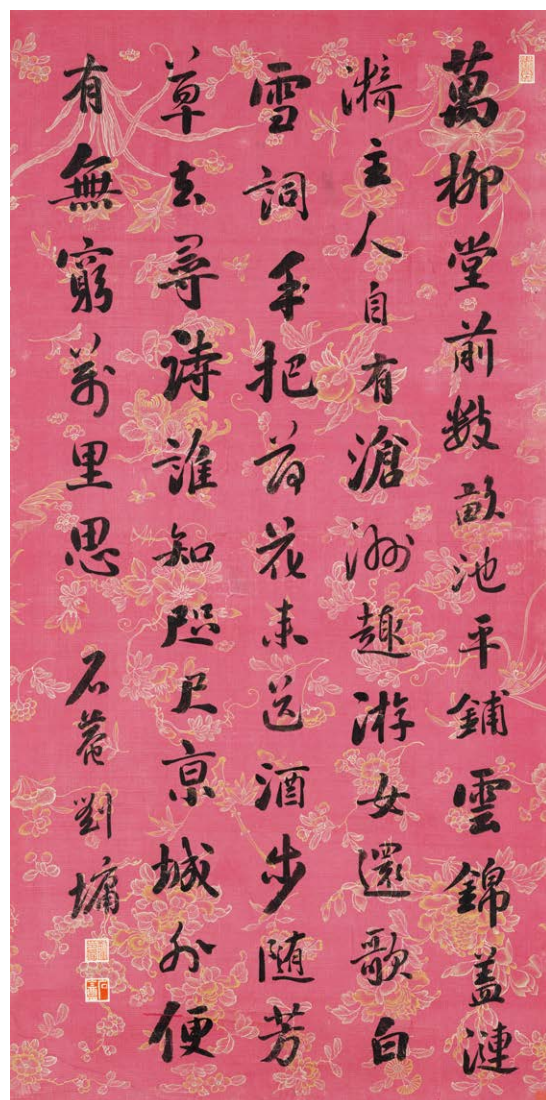 萬柳堂前數畝池平鋪雲錦蓋漣
漪主人自有滄洲趣游女還歌白
雪詞手把荷花來送酒步隨芳
草去尋詩誰知咫尺京城外便
有無窮萬里思
石菴劉墉